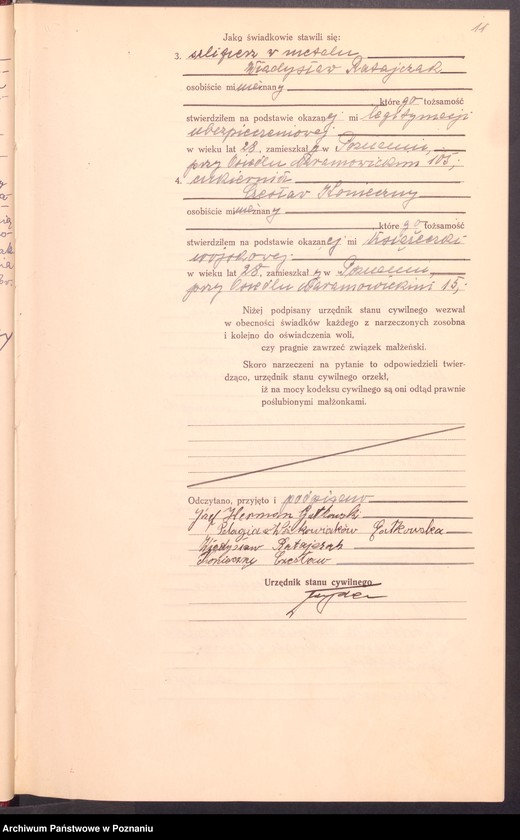 11
Jako świadkowie stawili się:
3. szlifierz v metalu
Władysław Ratajczak
osobiście mi nieznany
którego tożsamość
stwierdziłem na podstawie okazanej mi legitymacji
ubezpieczeniowej
w wieku lat 28, zamieszkał y w Poznaniu,
przy Osiedlu Naramowickim 105;
4. cukiernik
Czesław Konieczny
osobiście mi nieznany
którego tożsamość
stwierdziłem na podstawie okazanej mi książeczki
wojskowej
w wieku lat 28, zamieszkał y w Poznaniu,
przy Osiedlu Naramowickim 15;
Niżej podpisany urzędnik stanu cywilnego wezwał
w obecności świadków każdego z narzeczonych zosobna
i kolejno do oświadczenia woli,
czy pragnie zawrzeć związek małżeński.
Skoro narzeczeni na pytanie to odpowiedzieli twier-
dząco, urzędnik stanu cywilnego orzekł,
iż na mocy kodeksu cywilnego są oni odtąd prawnie
poślubionymi małżonkami.
Odczytano, przyjęto i podpisano
Józef Herman Gatkowski
Pelagia z Gatkowska
Władysław Ratajczak
Konieczny Czesław
Urzędnik stanu cywilnego
Archiwum Państwowe w Poznaniu